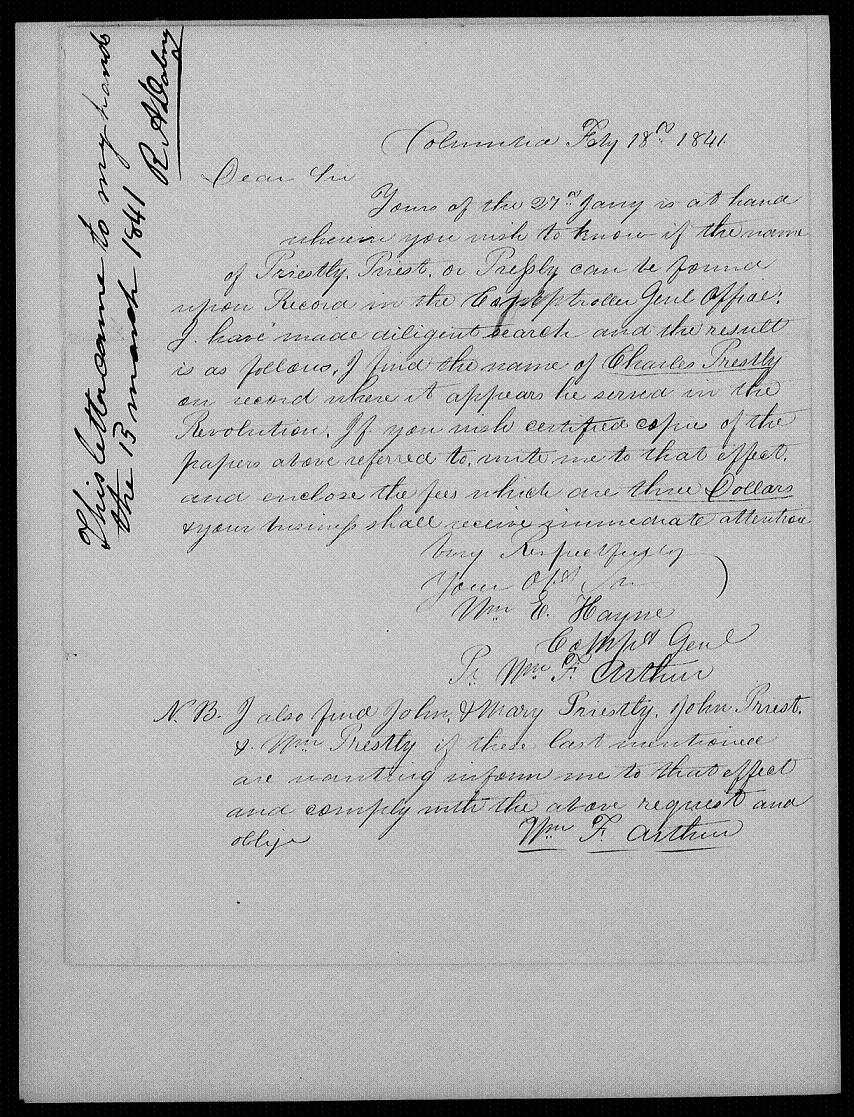 This letter came to my hands
the 15 march 1841 R. A. Dabney
Columbia Feby 18th 1841.
Dear Sir
Yours of the 27th Jany is at hand
wherein you wish to know if the name
of Priestly, Priest, or Pressly can be found
upon Record in the Comptroller Genl Office;
I have made diligent search and the result
is as follows, I find the name of Charles Prestly
on record where it appears he served in the
Revolution. If you wish certified copies of the
papers above referred to, write me to that effect,
and enclose the fees which are three Dollars
& your business shall receive immediate attention
Very Respectfully
Your Obt Sr.
Wm E. Hayne
Compt Genl
Pr Wm F. Arthur
N. B. I also find John, & Mary Priestly, John Priest,
& Wm Prestly if these last mentioned
are wanting inform me to that effect
and comply with the above request and
oblige
Wm F. Arthur